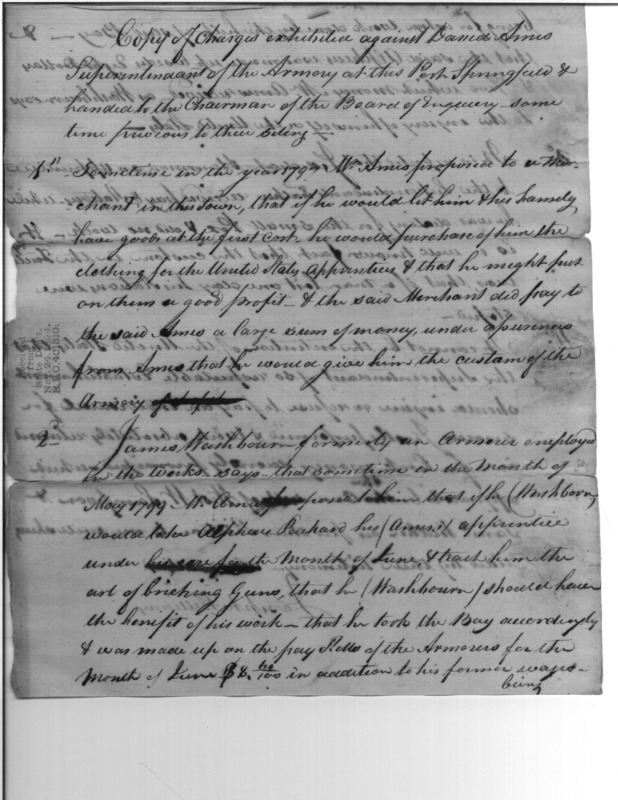 Copy of Charges exhibited against David Ames
Superintendant of the Armory at this Post Springfield &
handed to the Chairman of the Board of Enquiery some
time previous to their siting —
1st Sometime in the year 1797 Mr Ames proposed to a Mer-
chant in this Town, that if he would let him & his family
have goods at the first cost he would purchase of him the
clothing for the United States apprentices & that he might put
on them a good profit — & the said Merchant did pay to
the said Ames a large sum of money, under assurances
from Ames that he would give him the custom of the
Armory
2d James Washbourn formerly an Armourer employed
in the Works says — that sometime in the Month of
May 1799 Mr Ames proposed to him that if he (Washbourn)
would take Alpheus his (Ames's) apprentice
under the Month of June & teach him the
art of bricking Guns, that he (Washbourn) should have
the benefit of his work — that he took the Boy accordingly
& was made up on the pay Rolls of the Armorers for the
Month of June $8. /100 in addition to his former wages
being
Copied
from
State Dept.
Nov. 24,
B.